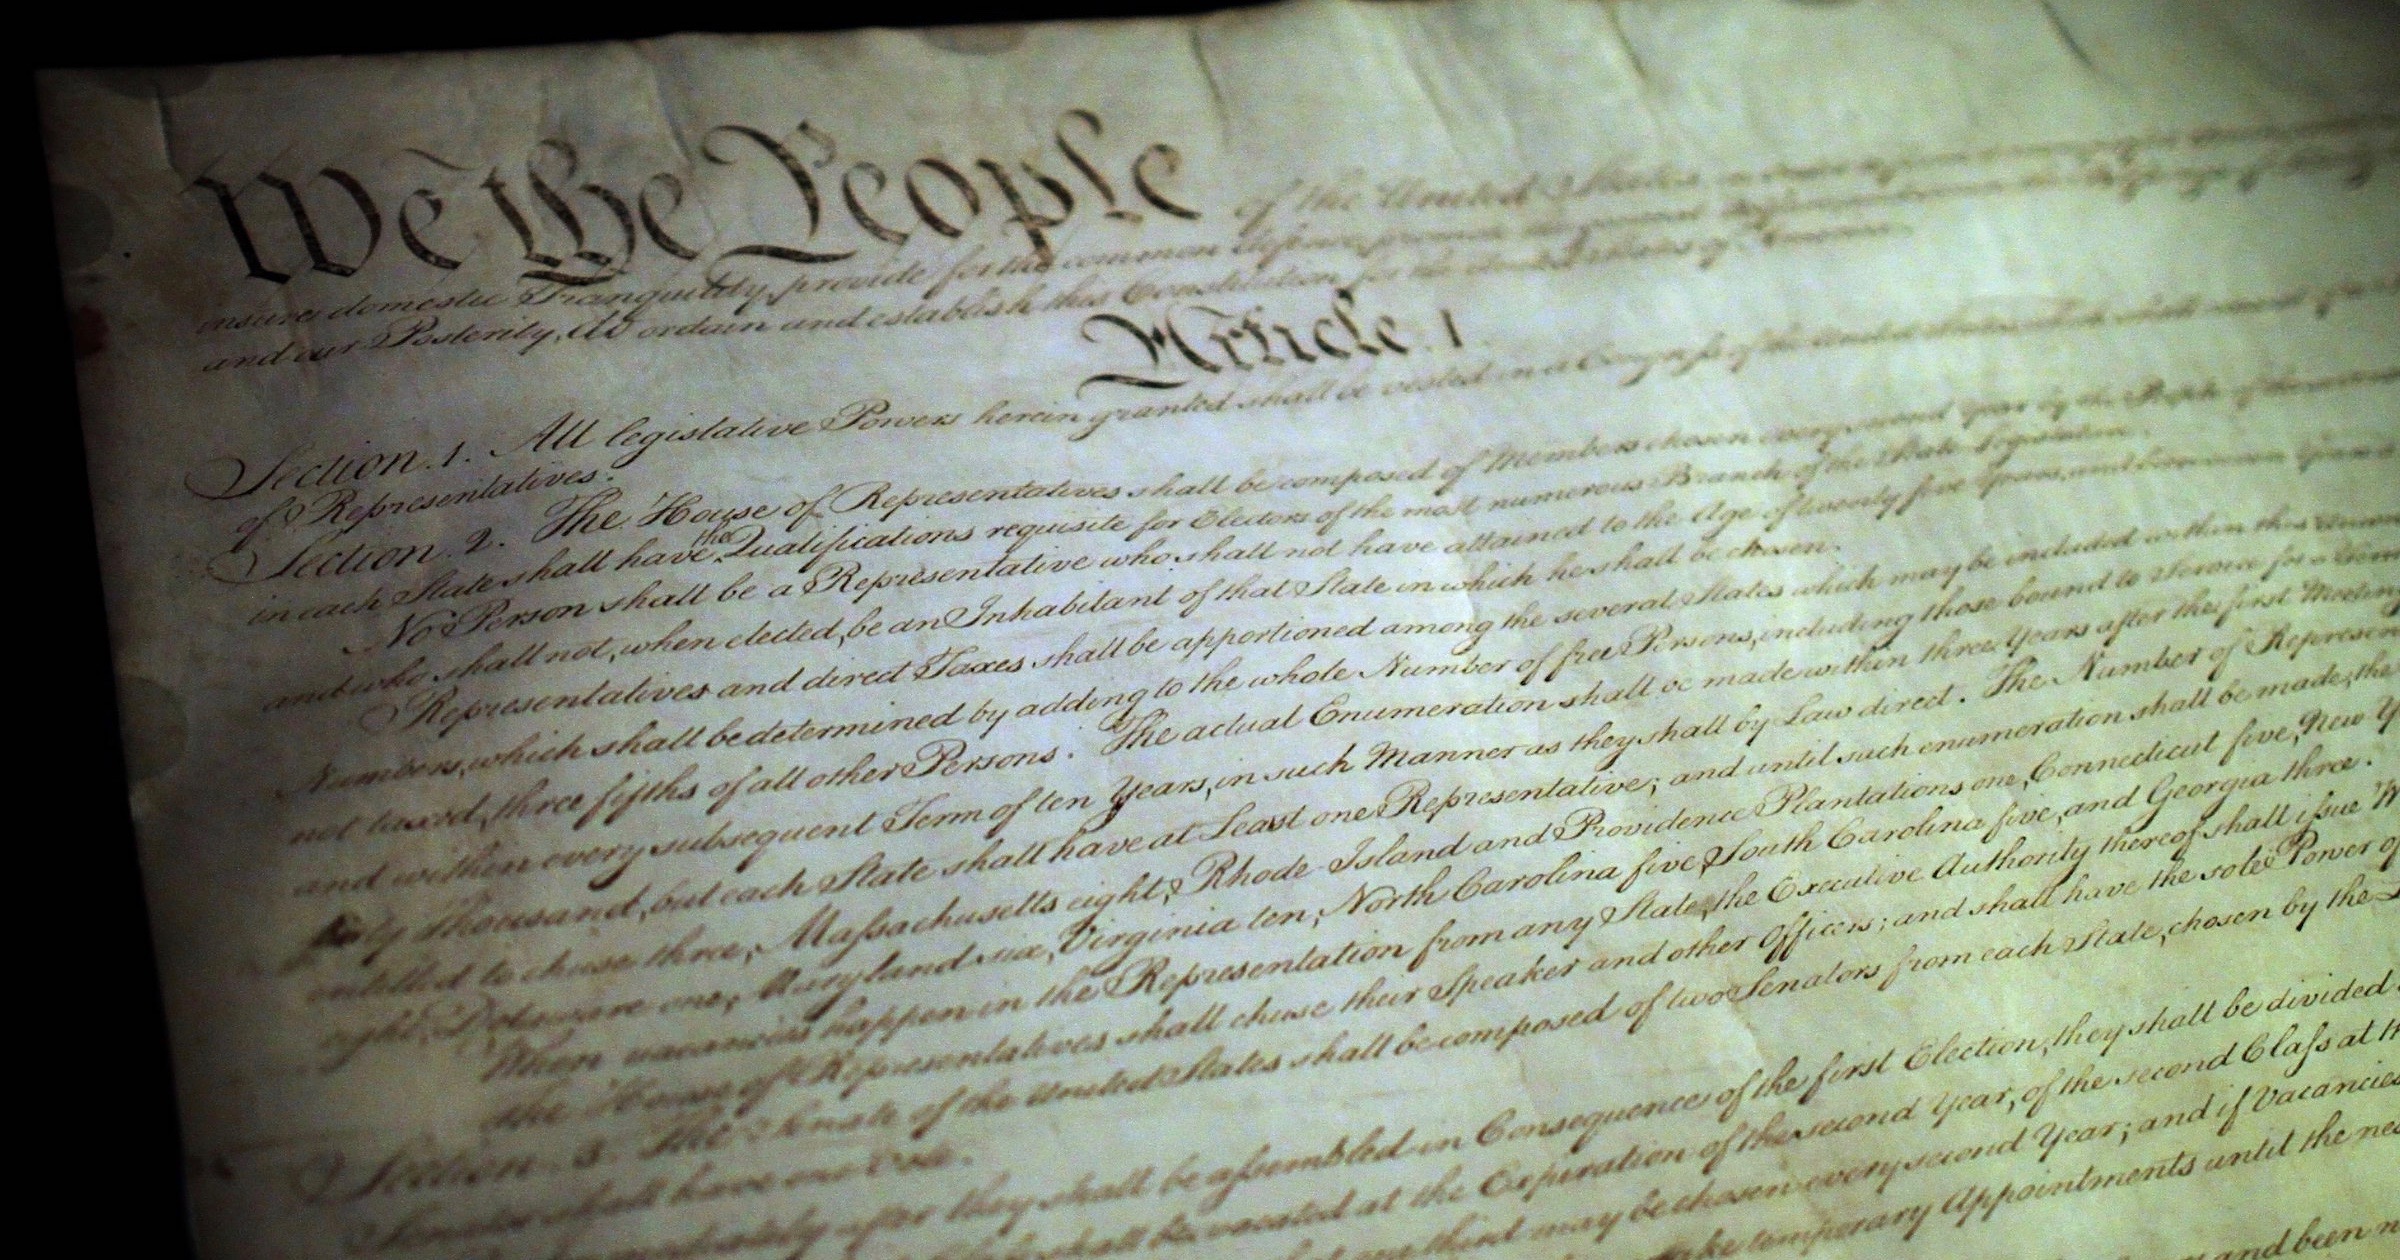 We the People of the United States
insure domestic Tranquility, provide for the common defence, promote
and our Posterity, do ordain and establish this Constitution for the United States of America.
Article. I.
Section. 1. All legislative Powers herein granted shall be vested in a Congress of the United States, which shall consist
of Representatives.
Section. 2. The House of Representatives shall be composed of Members chosen every second Year by the People of the several
in each State shall have the Qualifications requisite for Electors of the most numerous Branch of the State Legislature.
No Person shall be a Representative who shall not have attained to the Age of twenty five Years, and been seven Years a
and who shall not, when elected, be an Inhabitant of that State in which he shall be chosen.
Representatives and direct Taxes shall be apportioned among the several States which may be included within this Union
Numbers, which shall be determined by adding to the whole Number of free Persons, including those bound to Service for a Term
not taxed, three fifths of all other Persons. The actual Enumeration shall be made within three Years after the first Meeting
and within every subsequent Term of ten Years, in such Manner as they shall by Law direct. The Number of Represen
thirty Thousand, but each State shall have at Least one Representative; and until such enumeration shall be made, the
entitled to chuse three, Massachusetts eight, Rhode-Island and Providence Plantations one, Connecticut five, New Y
eight, Delaware one, Maryland six, Virginia ten, North Carolina five, South Carolina five, and Georgia three.
When vacancies happen in the Representation from any State, the Executive Authority thereof shall issue W
The House of Representatives shall chuse their Speaker and other Officers; and shall have the sole Power of
Section. 3. The Senate of the United States shall be composed of two Senators from each State, chosen by the
Senator shall have one Vote.
Immediately after they shall be assembled in Consequence of the first Election, they shall be divided
shall be vacated at the Expiration of the second Year, of the second Class at th
may be chosen every second Year; and if Vacancies
make temporary Appointments until the nex
and been n